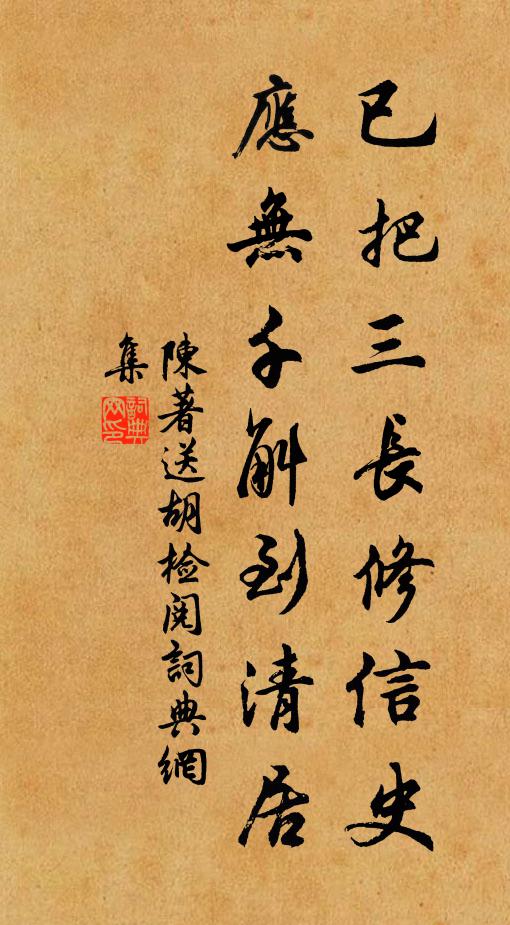 已把三長修信史
應無千斛到清居
陳著送胡檢閱詞典網
集
詞典網印